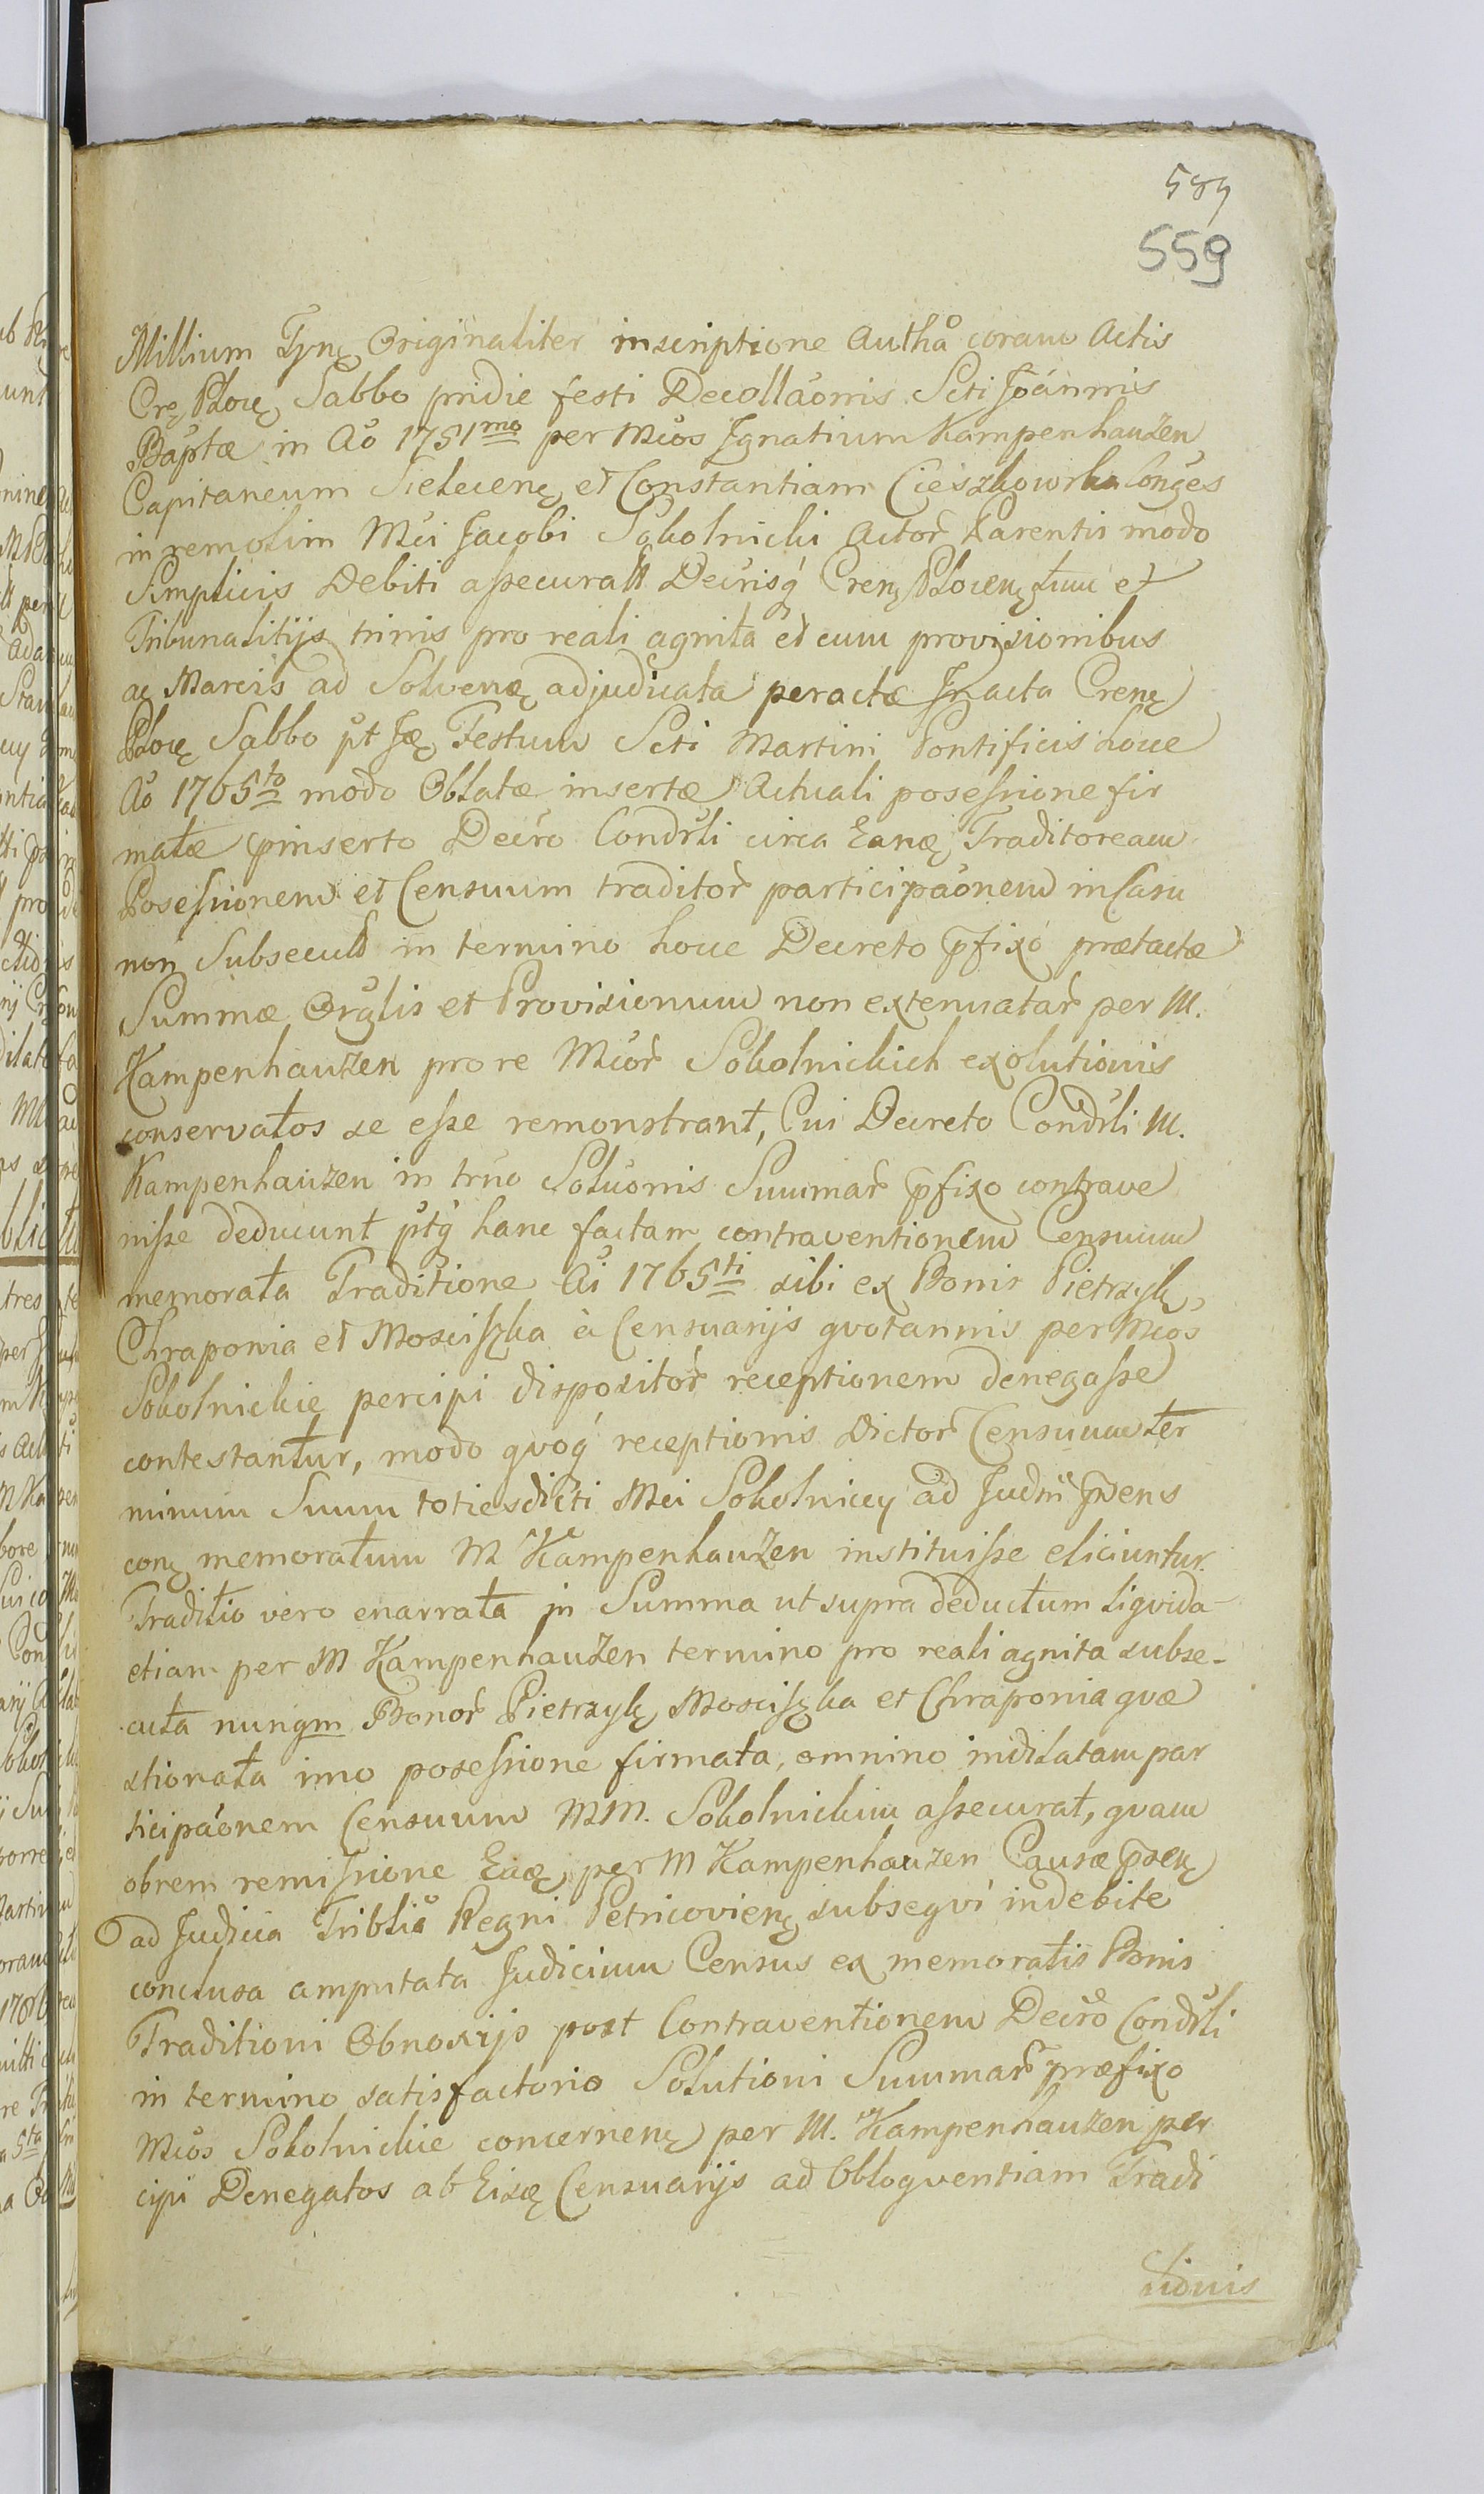 589
559
Millium Tynę Originaliter inscriptione Autha coram Actis
Crę Plocę Sabbo pridie festi Decollaonis Scti Joannis
Baptæ in Ao 1751mo per Mcos Ignatium Kampenhauzen
Capitaneum Sielecenę et Constantiam Cieszkowska Conges
in rem olim Mci Jacobi Sokolnicki Actor Parentis modo
Simplicis Debiti assecurata Decrisq Crenę Plocenę tum et
Tribunalitijs trinis pro reali agnita et cum provisionibus
ac Marcis ad Solvenę adjudicata peractæ In acta Crenę
Plocę Sabbo pt Ię Festum Scti Martini Pontificis hocce
Ao 1765to modo Oblatæ insertæ Actuali posessione fir
matæ pinserto Decro Condrli circa Eanę Traditoream
Posessionem et Censuum traditor participaonem in Casu
non Subsecuta in termino hocce Decreto pfixo prætactæ
Summæ Orglis et Provisionum non extenuatar per M.
Kampenhauzen pro re Mcor Sokolnickich exolutionis
conservatos se esse remonstrant, Cui Decreto Condrli M.
Kampenhauzen in trno Soluonis Summar pfixo contrave
nisse deducunt ptq hanc factam contraventionem Censuum
memorata Traditione Ai 1765ti sibi ex Bonis Pietrzyk,
Chraponia et Mosciszka à Censuarijs qvotannis per Mcos
Sokolnickie percipi dispositor receptionem denegasse
contestantur, modo qvoq receptionis Dictor Censuum ter
minum Suum totiesdicti Mci Sokolniccy ad Judm psens
conę memoratum M Kampenhauzen instituisse eliciuntur.
Traditio vero enarrata in Summa ut supra deductum liqvida
etiam per M Kampenhauzen termino pro reali agnita subse-
cuta nunqm Bonor Pietrzykę Mosciszka et Chraponia qvæ
stionata imo posessione firmata, omnino indilatam par
ticipaonem Censuum MM. Sokolnickim assecurat, qvam
obrem remissione Eaę per M Kampenhauzen Causæ psenę
ad Judicia Triblia Regni Petricovienę subseqvi indebite
conclusa amputata Judicium Census ex memoratis Bonis
Traditioni Obnoxijs post Contraventionem Decro Condrli
in termino satisfactorio Solutioni Summar præfixo
Mcos Sokolnickie concernenę per M. Kampenhauzen per
cipi Denegatos ab Eisę Censuarijs ad Obloqventiam Tradi
tionis